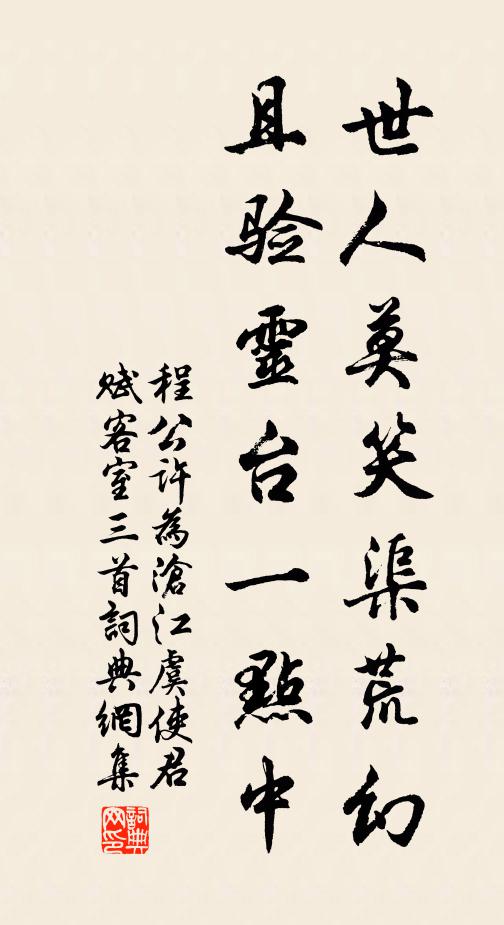 世人莫笑渠荒幻
且验靈台一點中
程公許為滄江虞使君
賦客室三首詞典網集
詞典
网印